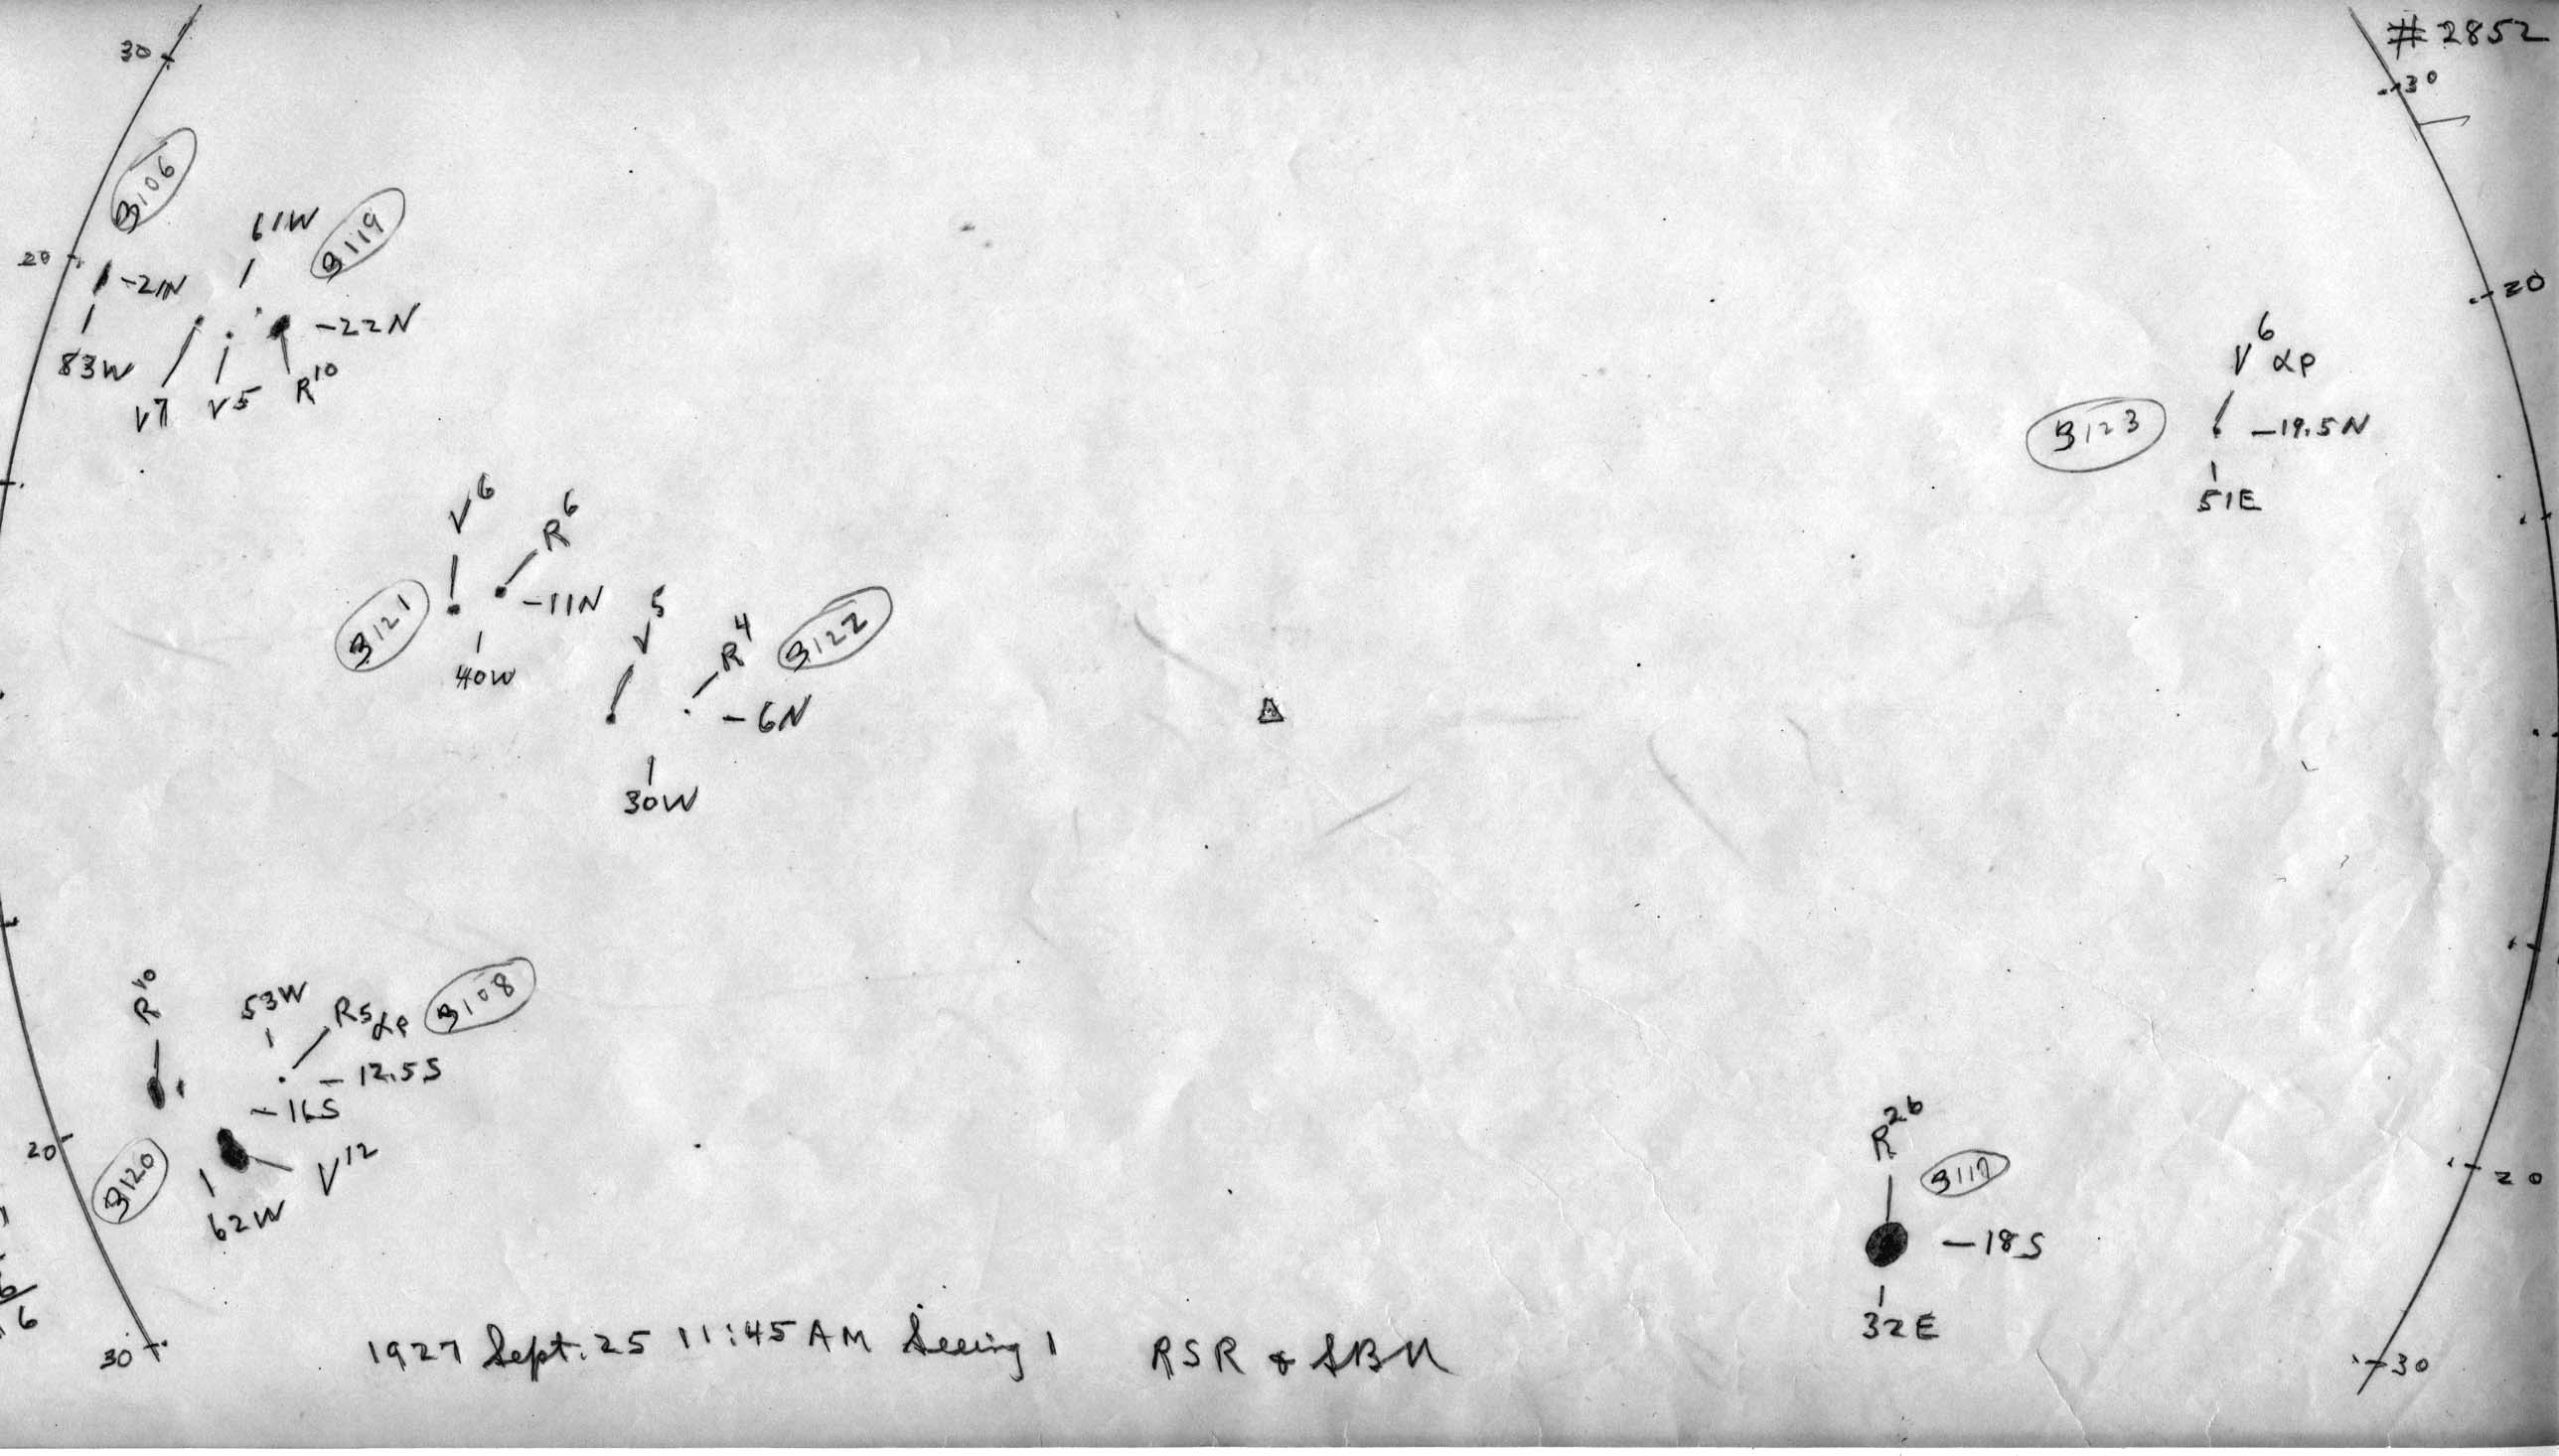 #2852
30
30
3106
61W
3119
20
-21N
-22N
20
83W
V7
V5
R10
V6 αp
3123
-19.5N
51E
V6
R6
3121
-11N
40W
V5
R4
3122
-6N
30W
R10
53W
R5 αp
3108
-12.5S
-16S
20
3120
V12
62W
R26
3117
20
-18S
32E
6
30
1927 Sept. 25 11:45 AM Seeing 1
RSR & SBN
30